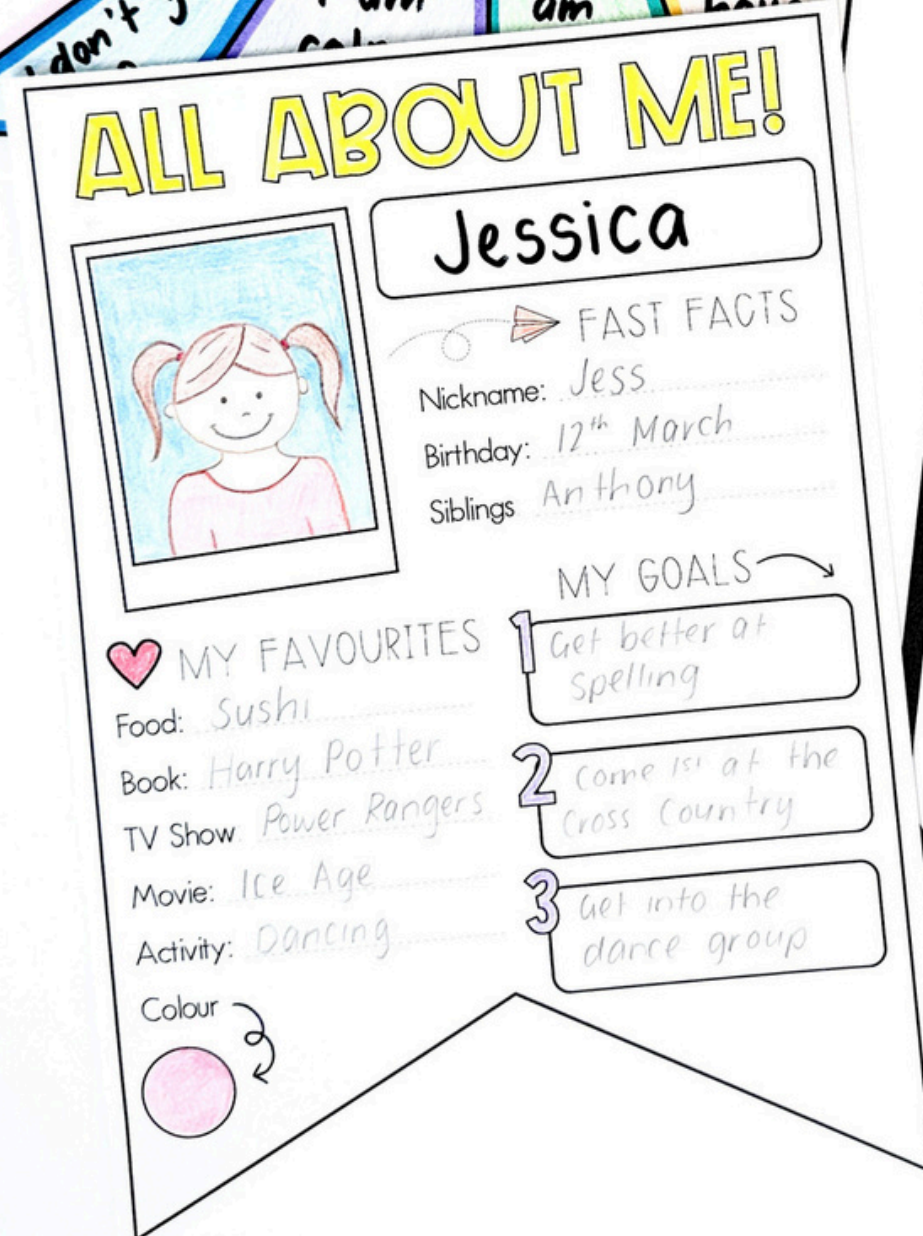 don't
I am
calm
am
ALL ABOUT ME!
Jessica
FAST FACTS
Nickname: Jess
Birthday: 12th March
Siblings Anthony
MY GOALS
1 Get better at
spelling
2 Come 1st at the
Cross Country
3 Get into the
dance group
MY FAVOURITES
Food: Sushi
Book: Harry Potter
TV Show Power Rangers
Movie: Ice Age
Activity: Dancing
Colour